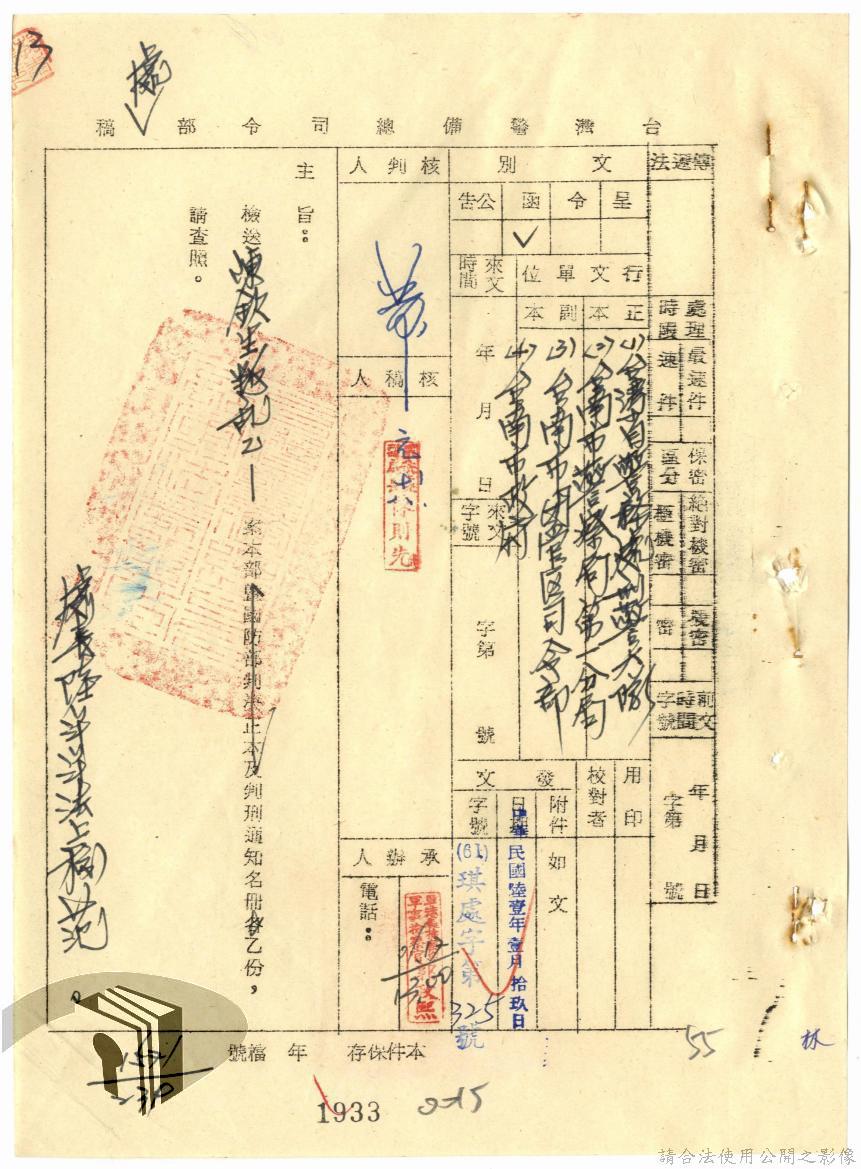 13
處
台灣警備總司令部稿
傳遞法
處理時限
最速件
速件
保密區分
絕對機密
極機密
密
副文時間字號
年月日
字第 號
文別
呈
令
函
公告
✓
行文單位
正本
副本
(1)台灣省警務處刑警大隊
(2)台南市警察局第一分局
(3)台南市團管區司令部
(4)台南市政府
來文時間
年月日
來文字號
字第 號
用印
校對者
發文
附件
如文
日期
中華民國陸壹年壹月拾玖日
字號
(61)琪處字第325號
核判人
核稿人
元十八
承辦人
電話：
1/17
1300
主旨：
檢送陳欽生叛亂乙案本部暨國防部判決正本及判刑通知名冊各乙份，
請查照。
本件保存 年 檔號
1571
230
1933
0-15
55
林
請合法使用公開之影像